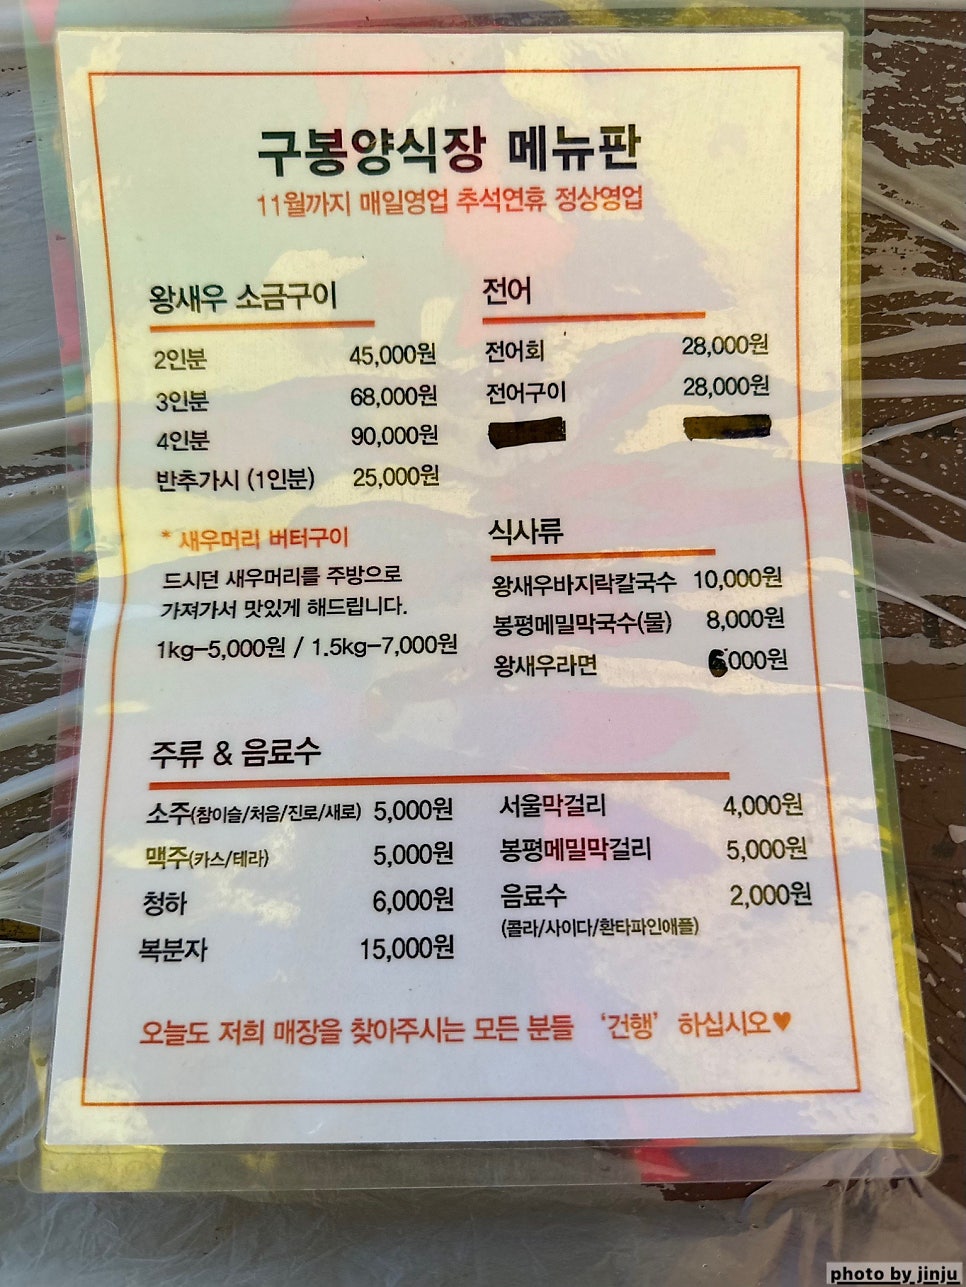 구봉양식장 메뉴판
11월까지 매일영업 추석연휴 정상영업
왕새우 소금구이
2인분 45,000원
3인분 68,000원
4인분 90,000원
반추가시 (1인분) 25,000원
* 새우머리 버터구이
드시던 새우머리를 주방으로
가져가서 맛있게 해드립니다.
1kg-5,000원 / 1.5kg-7,000원
전어
전어회 28,000원
전어구이 28,000원
식사류
왕새우바지락칼국수 10,000원
봉평메밀막국수(물) 8,000원
왕새우라면 6,000원
주류 & 음료수
소주(참이슬/처음/진로/새로) 5,000원
맥주(카스/테라) 5,000원
청하 6,000원
복분자 15,000원
서울막걸리 4,000원
봉평메밀막걸리 5,000원
음료수 2,000원
(콜라/사이다/환타파인애플)
오늘도 저희 매장을 찾아주시는 모든 분들 '건행' 하십시오♥
photo by jinju